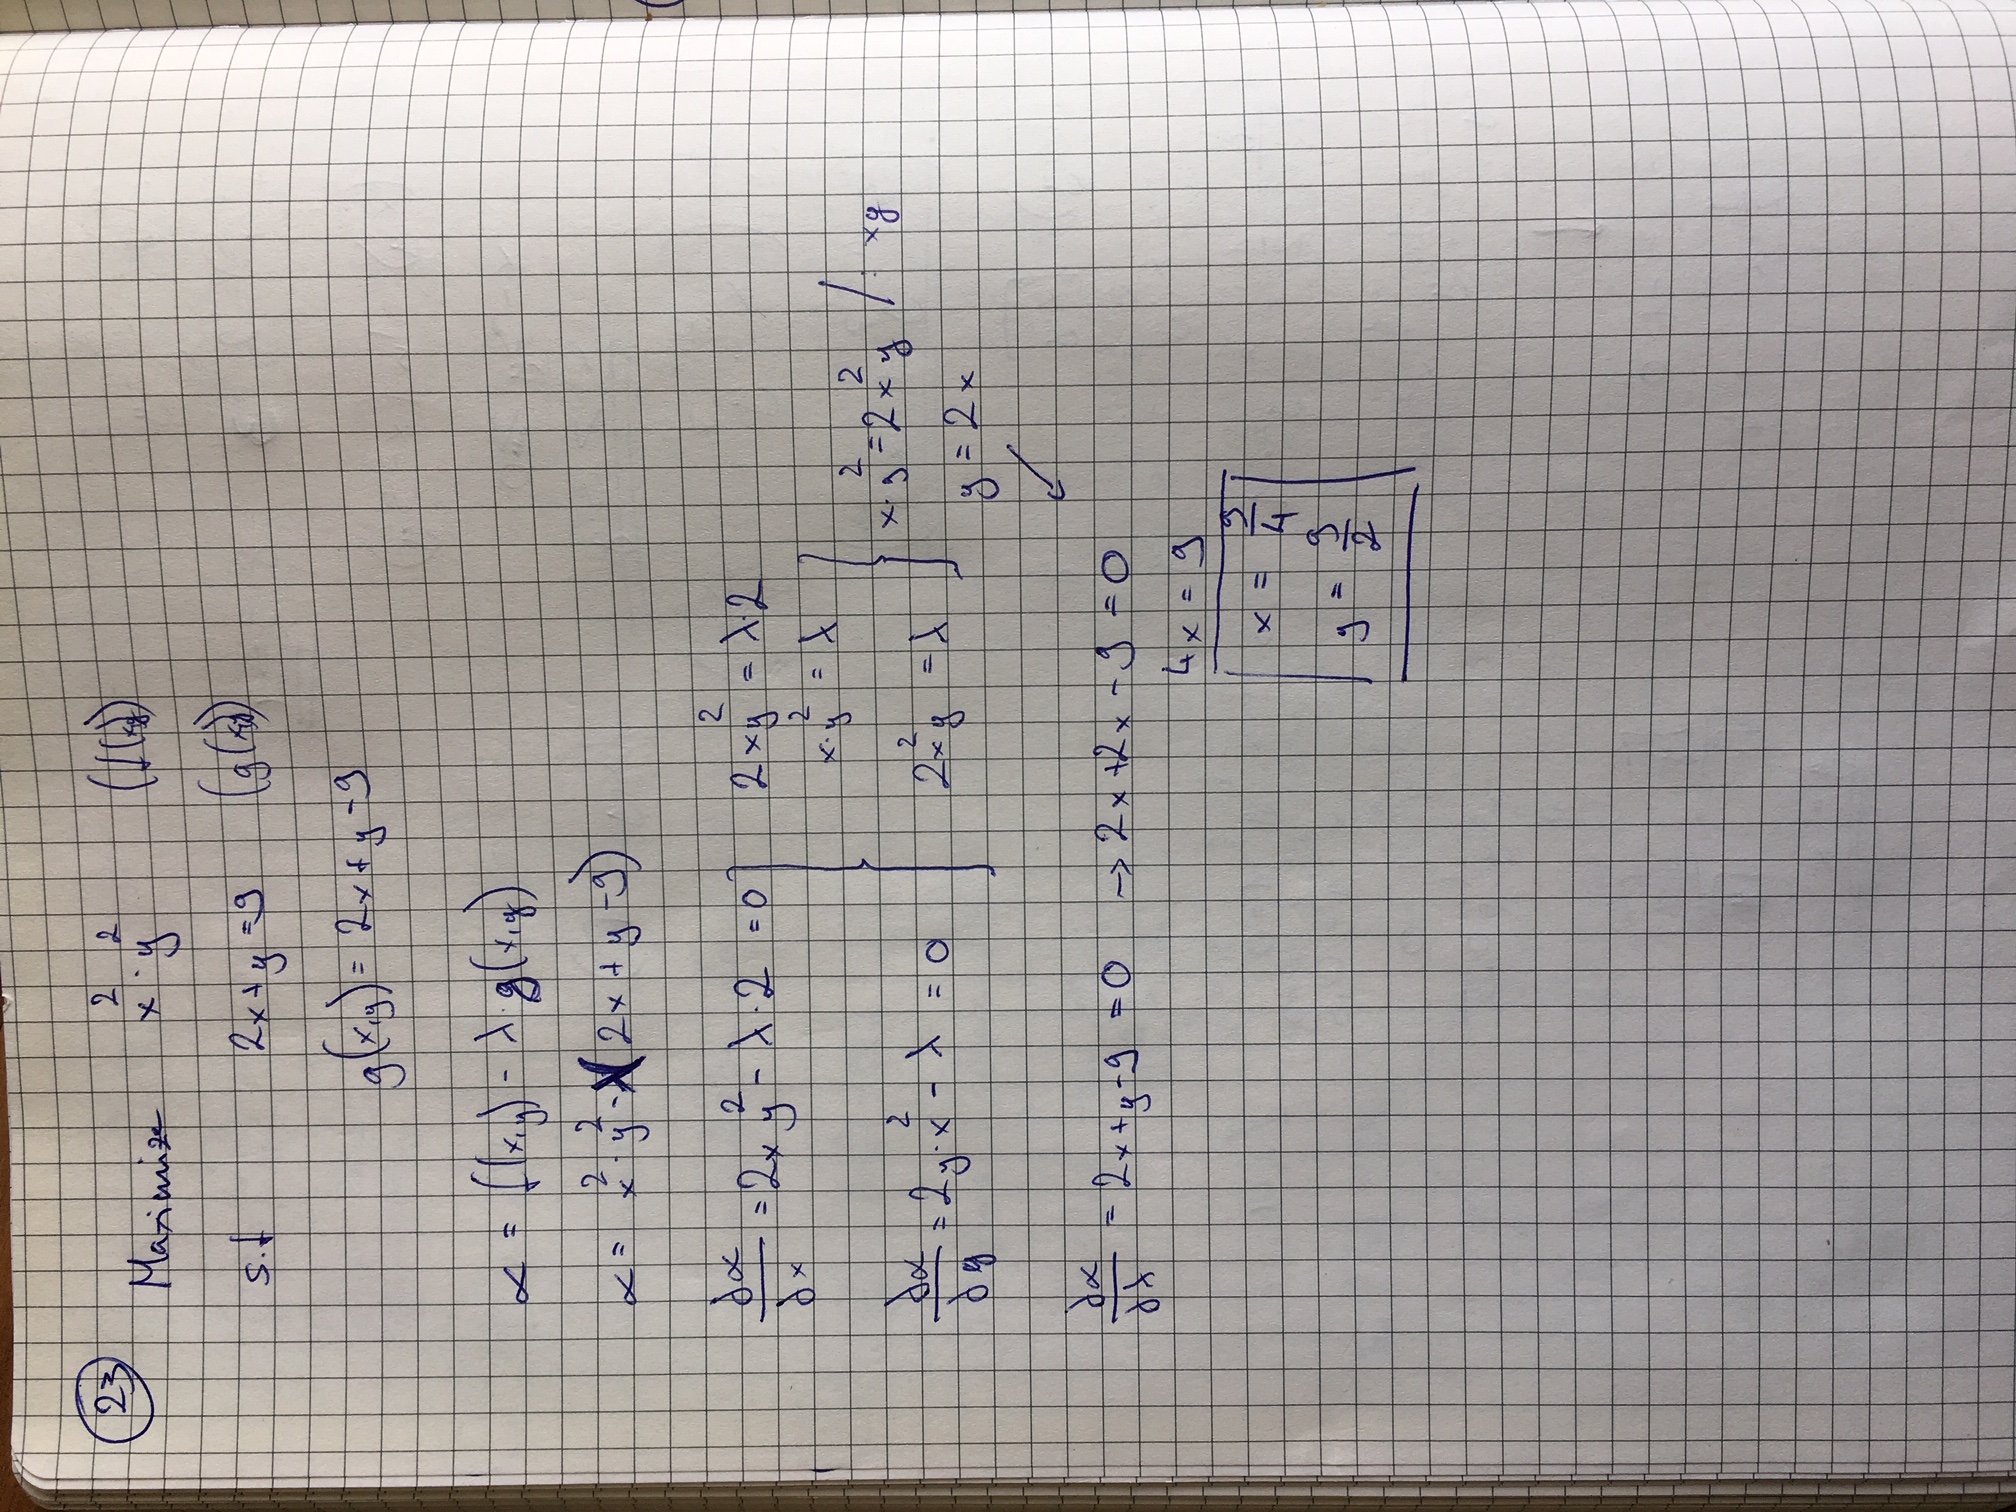 23
Maximize x²·y² (f(x,y))
s.t 2x+y=9 (g(x,y))
g(x,y) = 2x+y-9
α = f(x,y) - λ·g(x,y)
α = x²·y² - λ(2x+y-9)
∂α/∂x = 2xy² - λ·2 = 0
2xy² = λ·2
x·y² = λ
∂α/∂y = 2y·x² - λ = 0
2x²y = λ
x·y² = 2x²y /: xy
y = 2x
∂α/∂λ = 2x+y-9 = 0 → 2x+2x-9 = 0
4x = 9
x = 9/4
y = 9/2